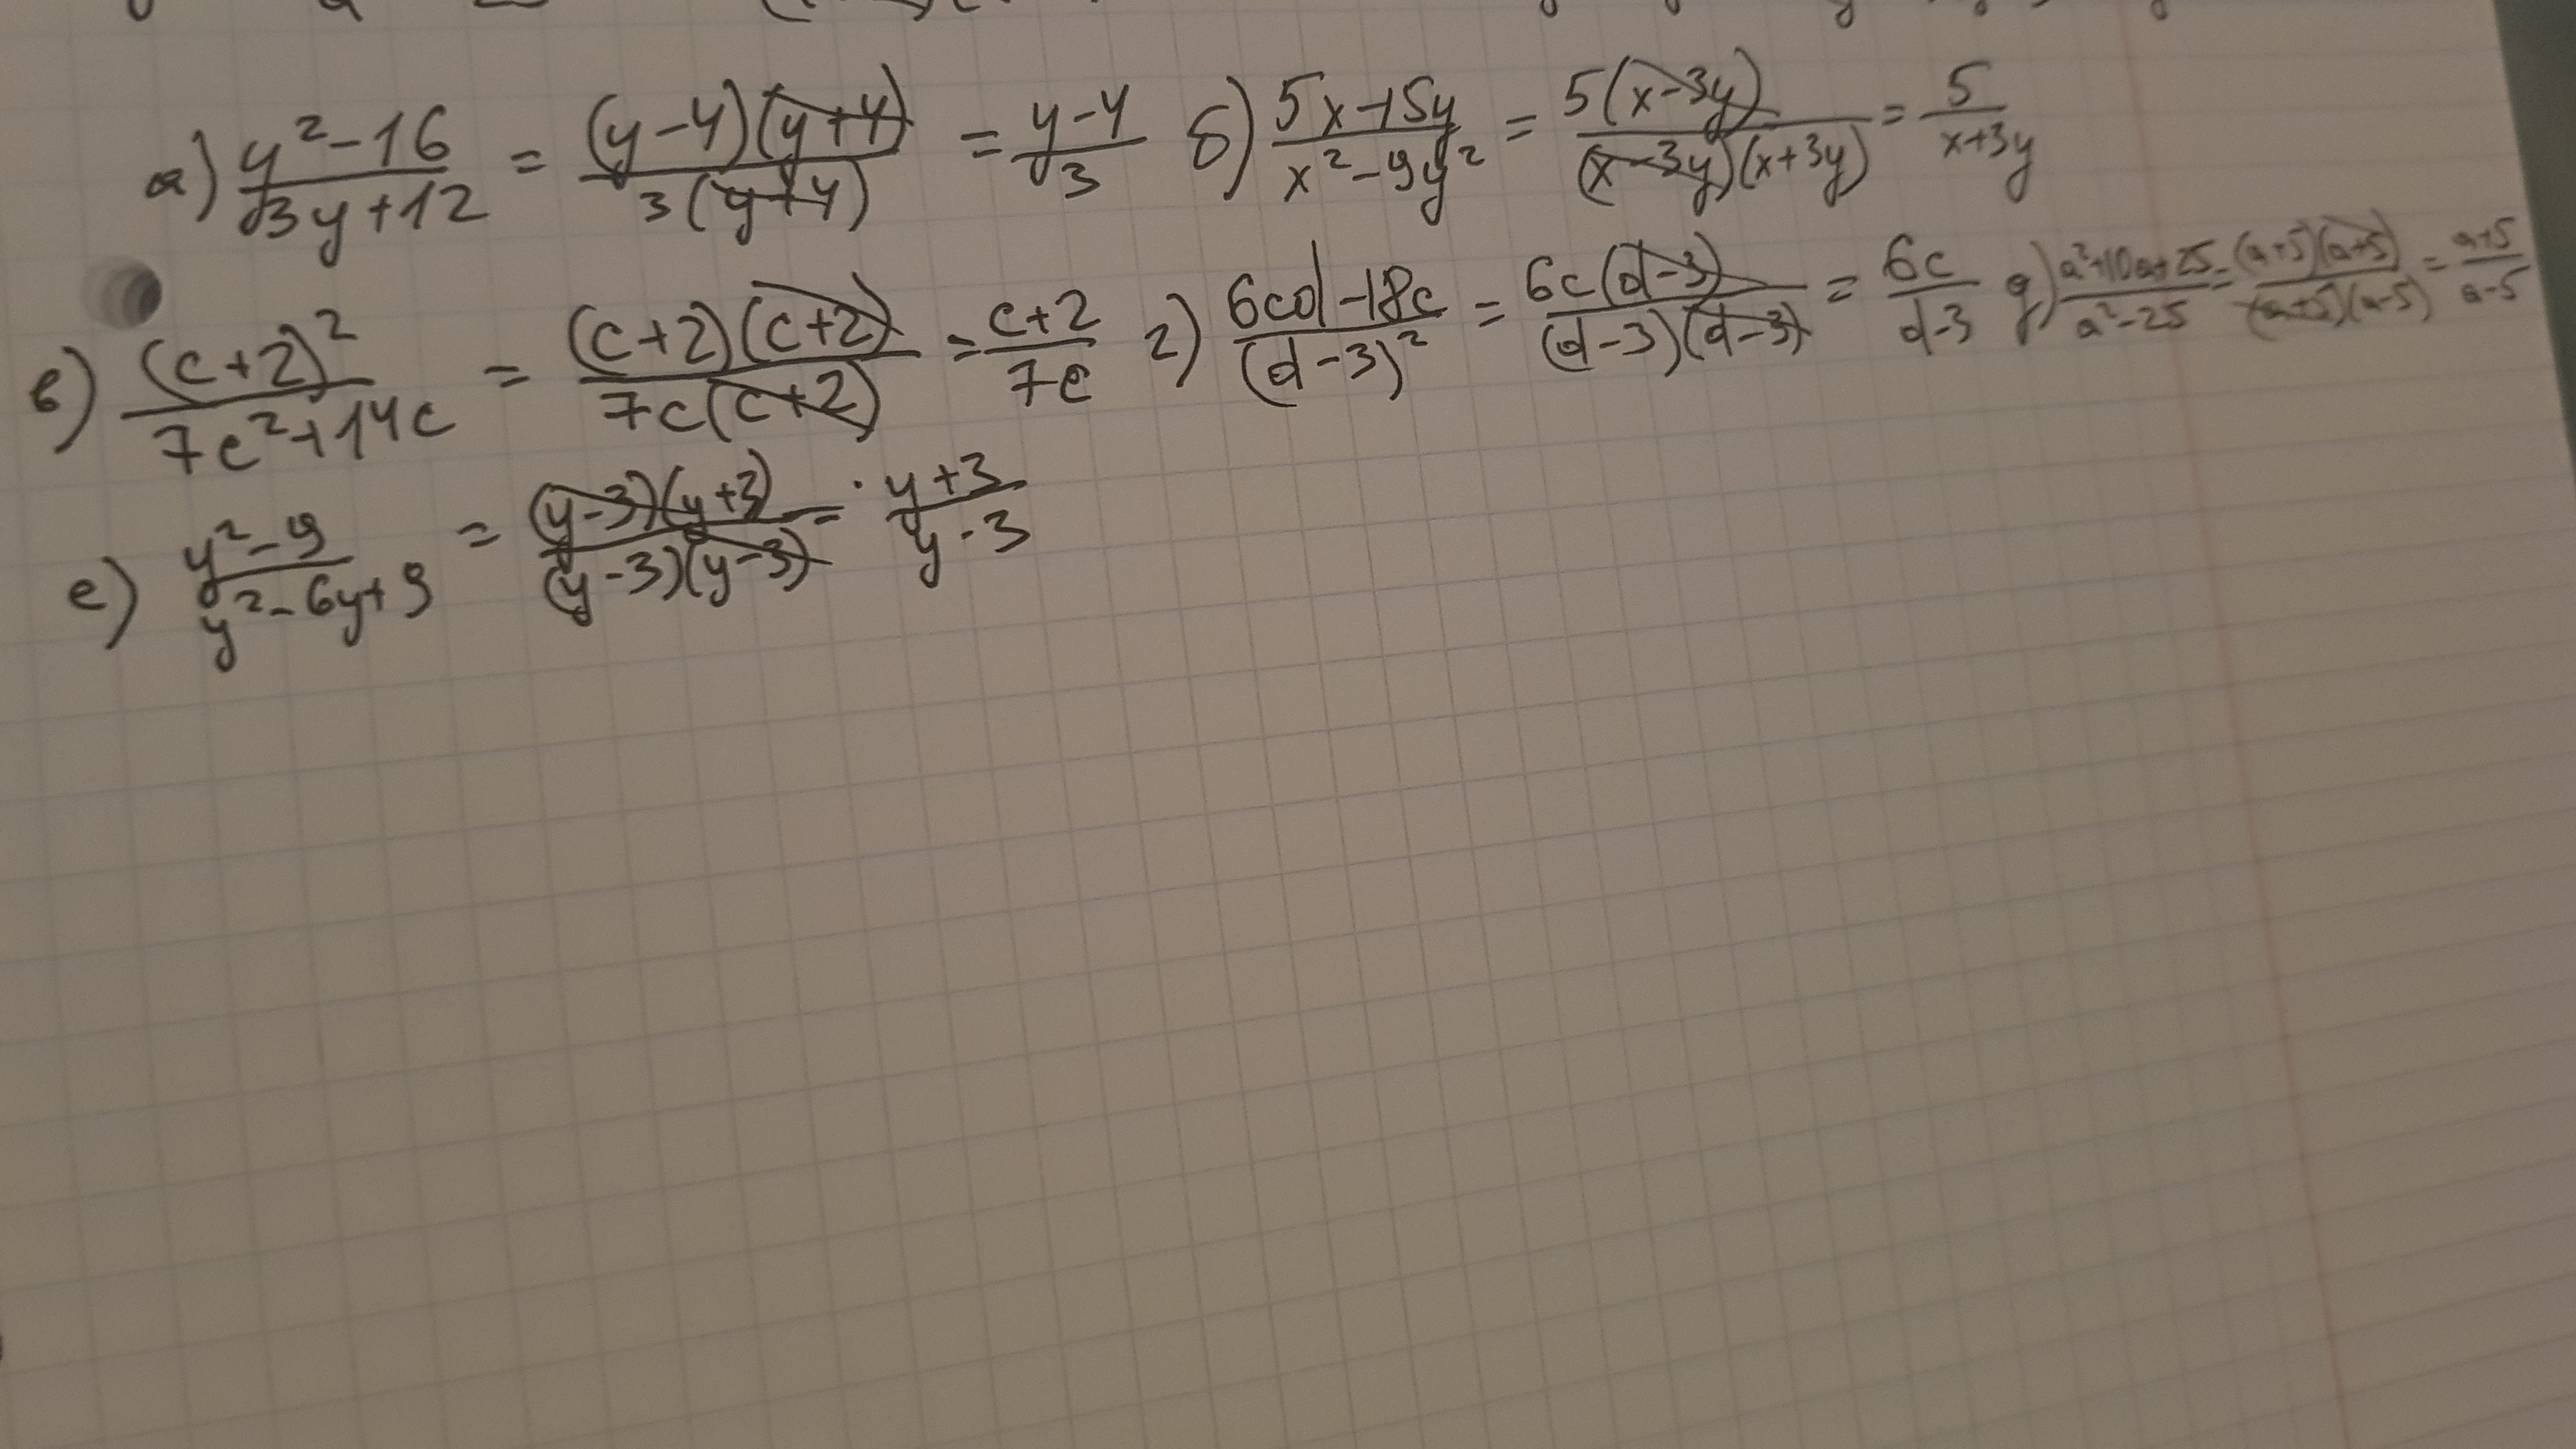 а) (y²-16)/(3y+12) = ((y-4)(y+4))/(3(y+4)) = (y-4)/3 б) (5x-15y)/(x²-9y²) = (5(x-3y))/((x-3y)(x+3y)) = 5/(x+3y)
в) (c+2)²/(7c²+14c) = ((c+2)(c+2))/(7c(c+2)) = (c+2)/(7c) г) (6cd-18c)/(d-3)² = (6c(d-3))/((d-3)(d-3)) = 6c/(d-3) д) (a²+10a+25)/(a²-25) = ((a+5)(a+5))/((a+5)(a-5)) = (a+5)/(a-5)
е) (y²-9)/(y²-6y+9) = ((y-3)(y+3))/((y-3)(y-3)) = (y+3)/(y-3)